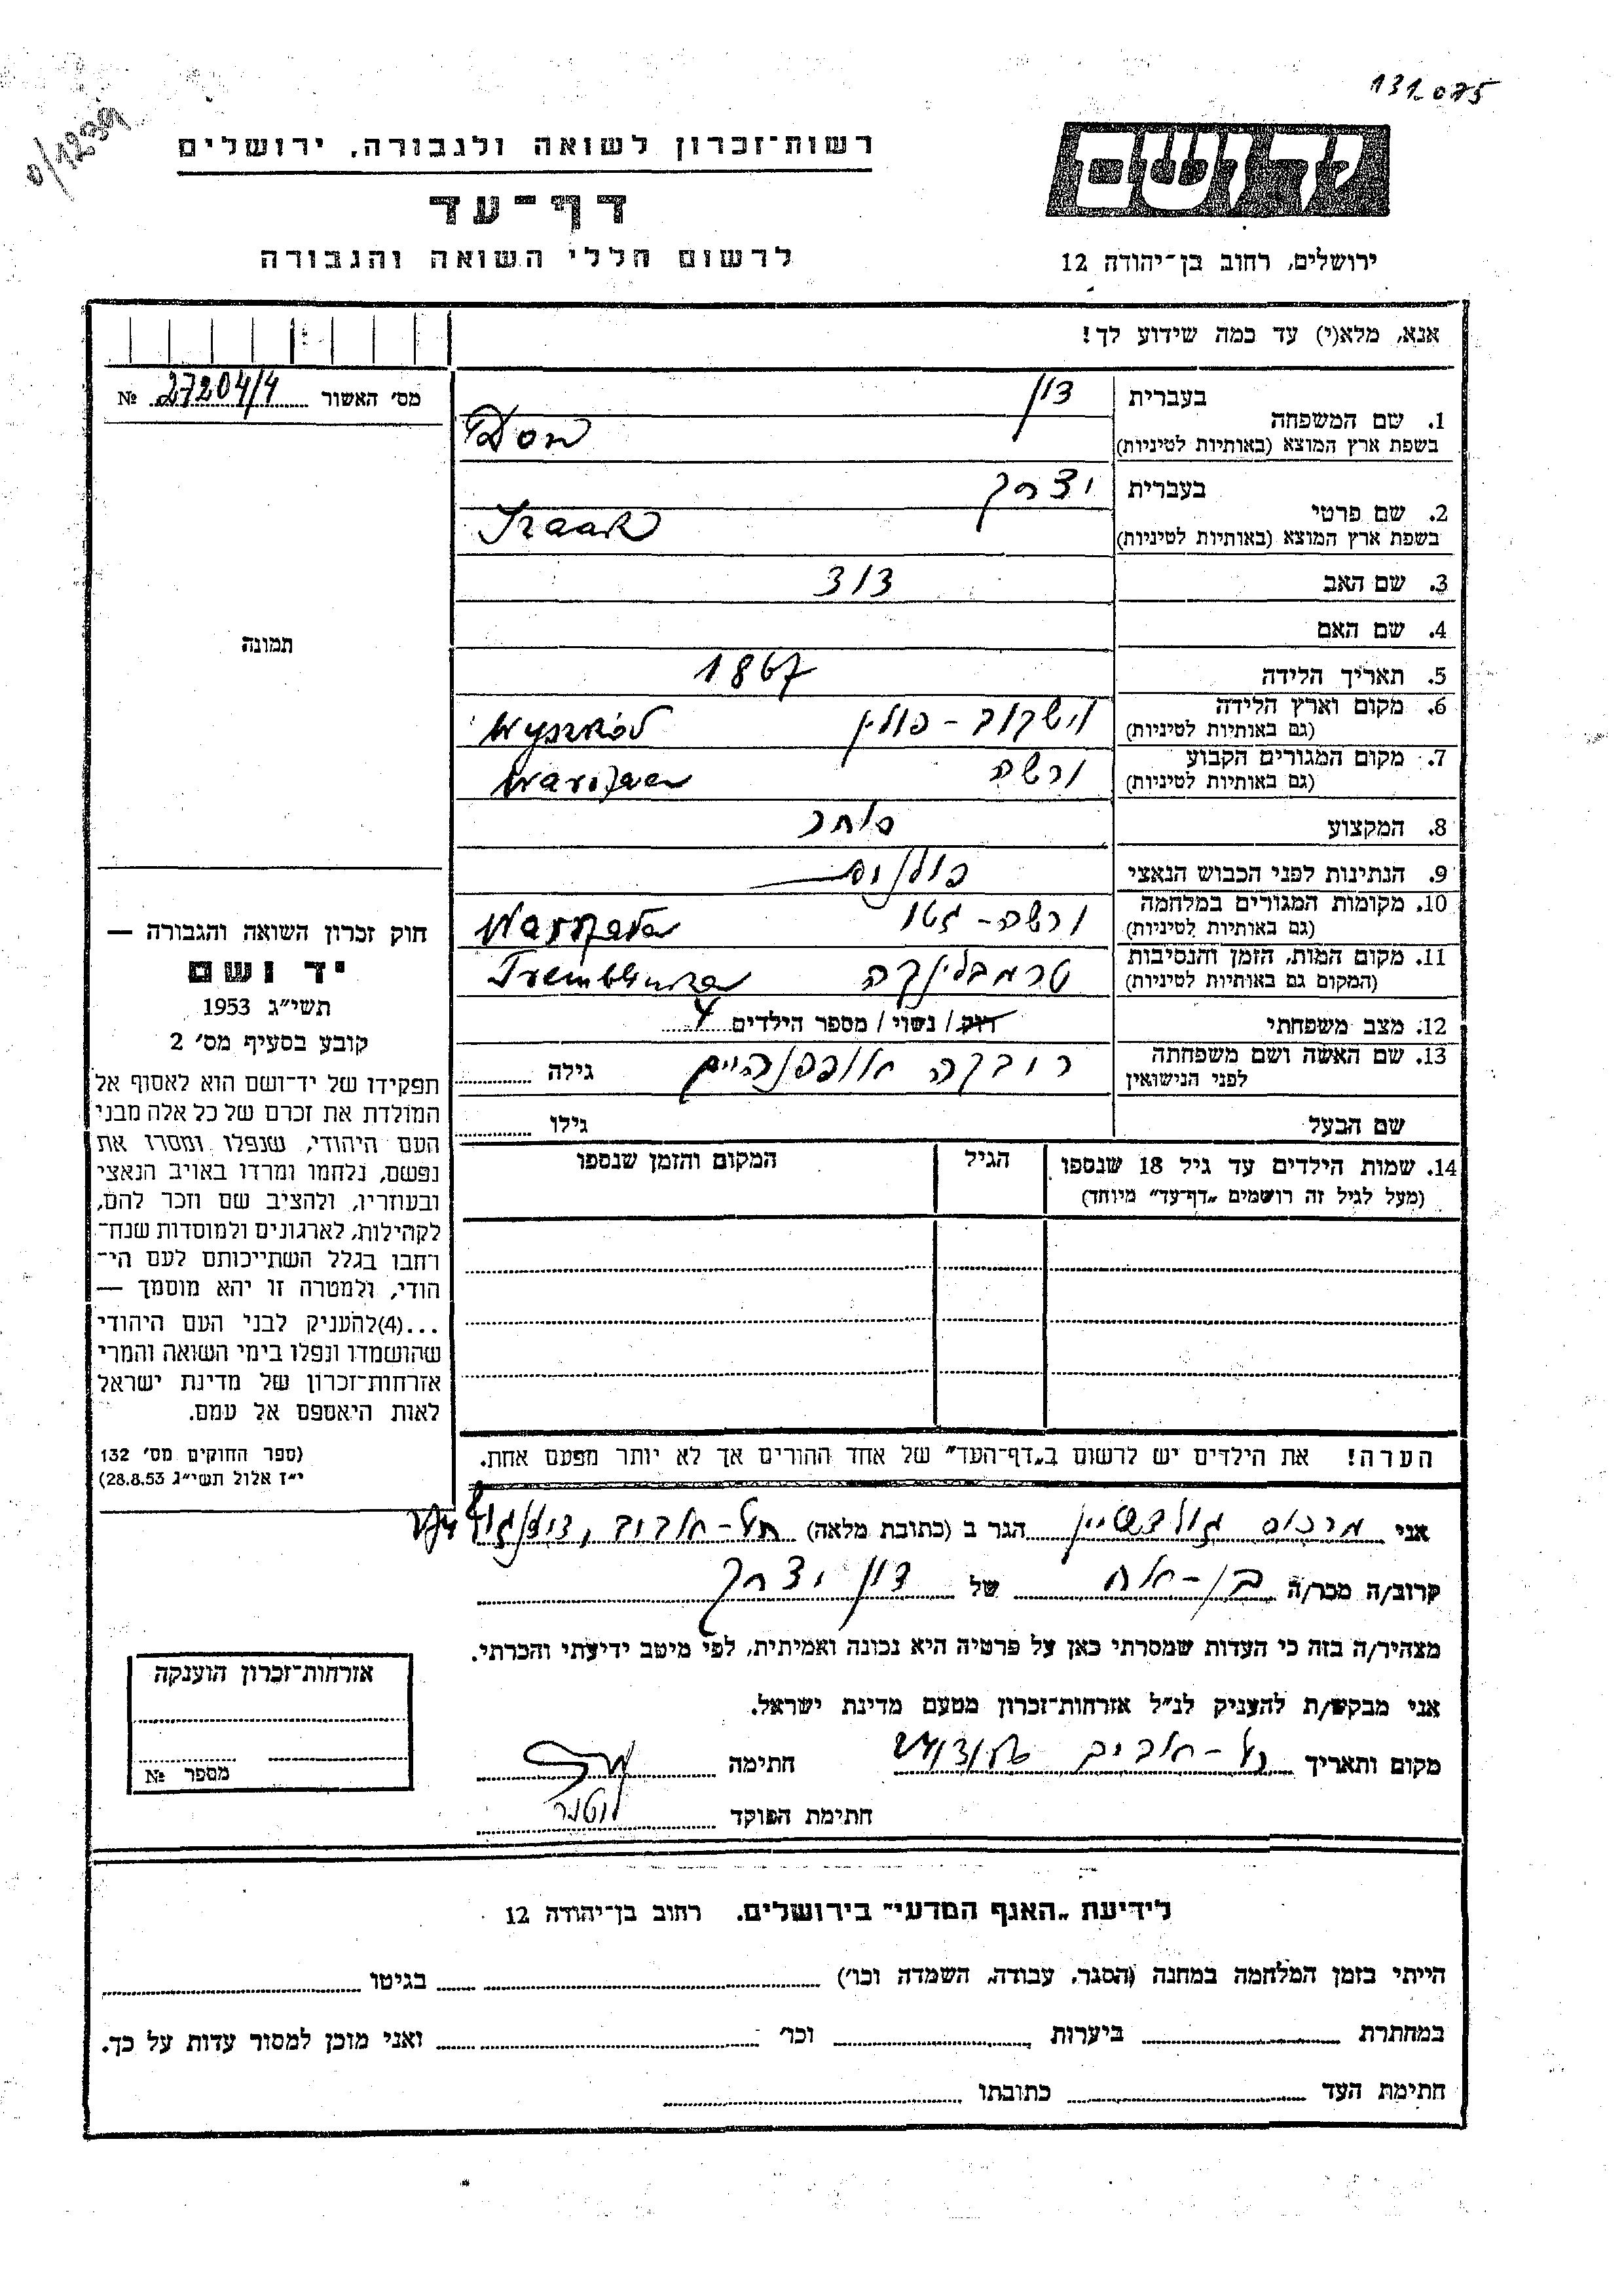 131075
0/1239
יד ושם
רשות־זכרון לשואה ולגבורה, ירושלים
דף־עד
לרשום חללי השואה והגבורה
ירושלים, רחוב בן־יהודה 12
אנא, מלא(י) עד כמה שידוע לך!
מס׳ האשור № 27204/4
תמונה
1. שם המשפחה
בעברית דון
בשפת ארץ המוצא (באותיות לטיניות) Don
2. שם פרטי
בעברית יצחק
בשפת ארץ המוצא (באותיות לטיניות) Izaak
3. שם האב דוד
4. שם האם
5. תאריך הלידה 1867
6. מקום וארץ הלידה וישקוב - פולין Wyszków
(גם באותיות לטיניות)
7. מקום המגורים הקבוע ורשה
(גם באותיות לטיניות)
8. המקצוע סוחר
9. הנתינות לפני הכבוש הנאצי
10. מקומות המגורים במלחמה ורשה - גטו
(גם באותיות לטיניות)
11. מקום המות, הזמן והנסיבות טרמבלינקה Tremblinka
(המקום גם באותיות לטיניות)
12. מצב משפחתי רווק / נשוי / מספר הילדים 4
13. שם האשה ושם משפחתה רובקה גילה
לפני הנישואין
שם הבעל גילו
14. שמות הילדים עד גיל 18 שנספו הגיל המקום והזמן שנספו
(מעל לגיל זה רושמים „דף־עד” מיוחד)
הערה! את הילדים יש לרשום ב„דף־העד” של אחד ההורים אך לא יותר מפעם אחת.
חוק זכרון השואה והגבורה —
יד ושם
תשי״ג 1953
קובע בסעיף מס׳ 2
תפקידו של יד־ושם הוא לאסוף אל
המולדת את זכרם של כל אלה מבני
העם היהודי, שנפלו ומסרו את
נפשם, נלחמו ומרדו באויב הנאצי
ובעוזריו, ולהציב שם וזכר להם,
לקהילות, לארגונים ולמוסדות שנח־
רחבו בגלל השתייכותם לעם הי־
הודי, ולמטרה זו יהא מוסמך —
...(4)להעניק לבני העם היהודי
שהושמדו ונפלו בימי השואה והמרי
אזרחות־זכרון של מדינת ישראל
לאות היאספם אל עמם.
(ספר החוקים מס׳ 132
י״ז אלול תשי״ג 28.8.53)
אני מרכוס גולדשטיין הגר ב (כתובת מלאה) תל-אביב,
קרוב/ה מכר/ה בן-אח של דון יצחק
מצהיר/ה בזה כי העדות שמסרתי כאן על פרטיה היא נכונה ואמיתית, לפי מיטב ידיעתי והכרתי.
אני מבקש/ת להעניק לנ״ל אזרחות־זכרון מטעם מדינת ישראל.
מקום ותאריך תל-אביב חתימה
חתימת הפוקד
אזרחות־זכרון הוענקה
מספר №
לידיעת „האגף המדעי” בירושלים. רחוב בן־יהודה 12
הייתי בזמן המלחמה במחנה (הסגר, עבודה, השמדה וכו׳) בגיטו
במחתרת ביערות וכו׳ ואני מוכן למסור עדות על כך.
חתימת העד כתובתו